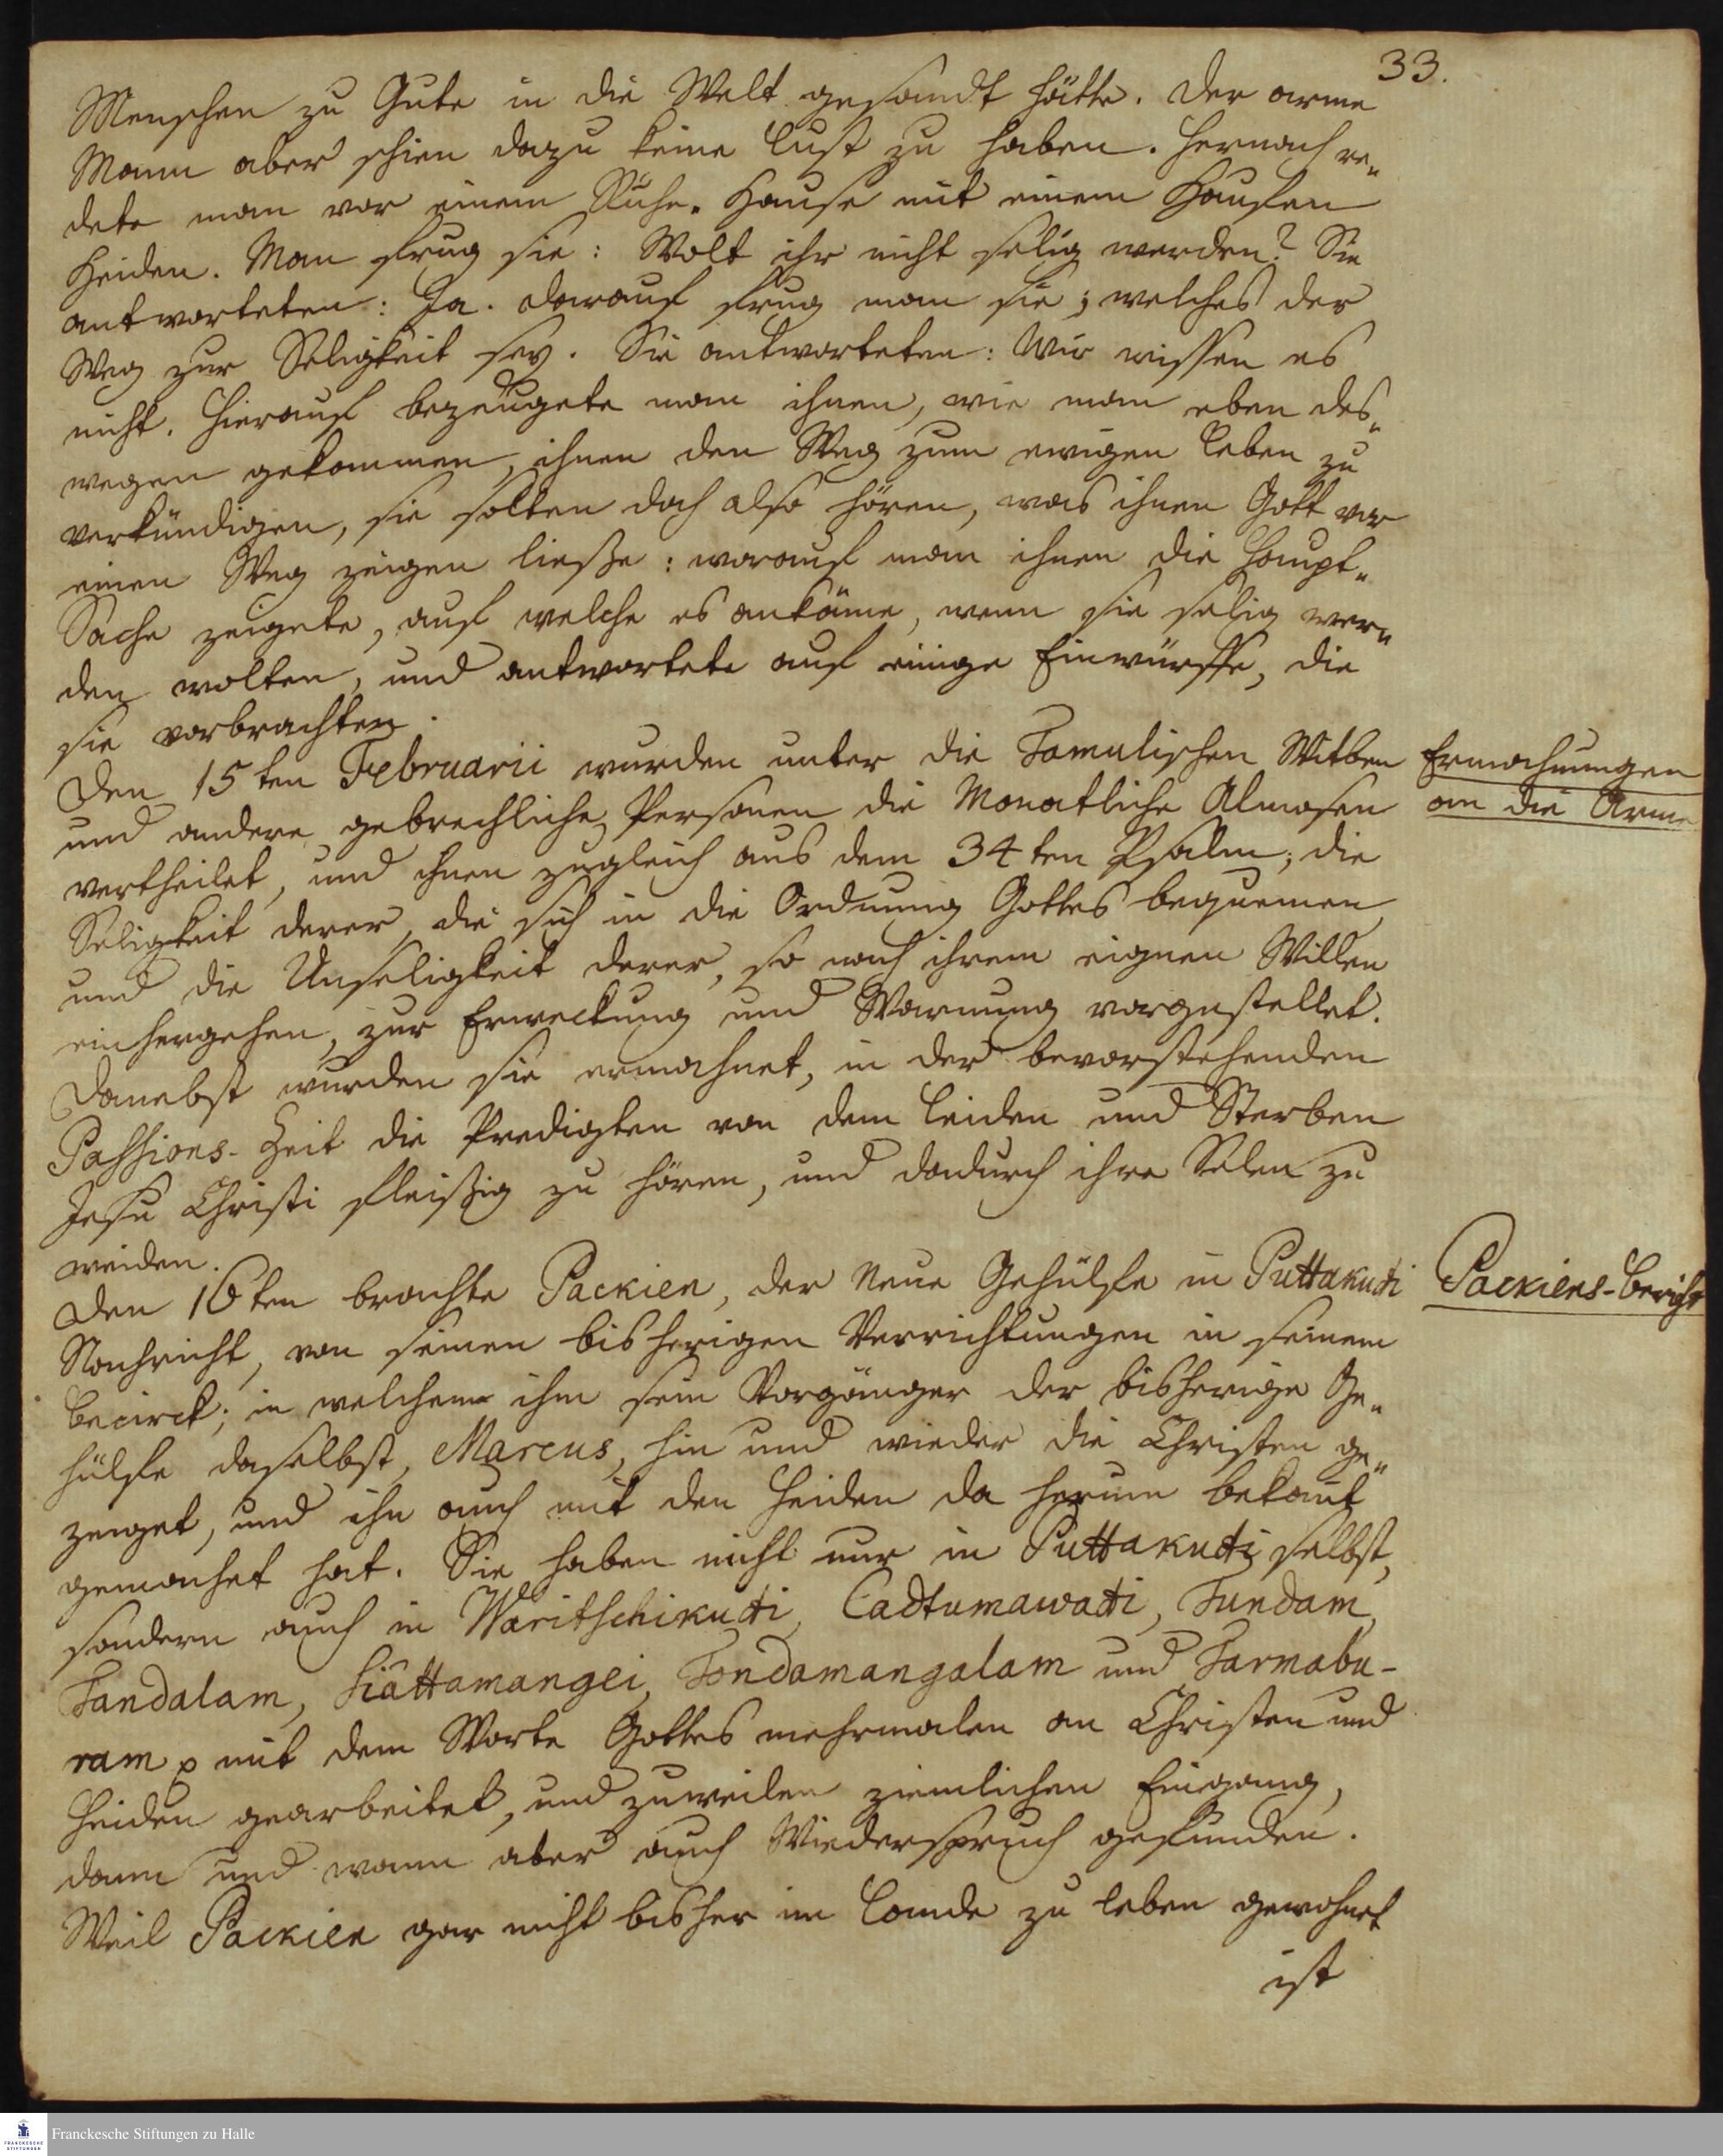 33.
Menschen zu Gute in die Welt gesandt hätte. Der arme
Mann aber schien dazu keine Lust zu haben. Hernach re„
dete man vor einem Ruhe-Hause mit einem Haufen
Heiden. Man frug sie: Wolt ihr nicht selig werden? Sie
antworteten: Ja. Darauf frug man sie; welches der
Weg zur Seligkeit sey. Sie antworteten: Wir wissen es
nicht. Hierauf bezeugete man ihnen, wie man eben des„
wegen gekommen, ihnen den Weg zum ewigen Leben zu
verkündigen, sie solten doch also hören, was ihnen Gott vor
einen Weg zeigen ließe: worauf man ihnen die Haupt„
Sache zeigete, auf welche es ankäme, wenn sie selig wer„
den wolten, und antwortete auf einige Einwürffe, die
sie vorbrachten.
Den 15ten Februarii wurden unter die Tamulischen Witben
Ermahnungen
an die Arme
und andere gebrechliche Personen die Monatliche Almosen
vertheilet, und ihnen zugleich aus dem 34ten Psalm, die
Seligkeit derer, die sich in die Ordnung Gottes bequemen,
und die Unseligkeit derer, so nach ihrem eignen Willen
einhergehen, zur Erweckung und Warnung vorgestellet.
Danebst wurden sie ermahnet, in der bevorstehenden
Passions-Zeit die Predigten von dem Leiden und Sterben
Jesu Christi fleißig zu hören, und dadurch ihre Selen zu
weiden.
Den 16ten brachte Packien, der Neue Gehülfe in Puttakudi
Packiens-Bericht
Nachricht, von seinen bisherigen Verrichtungen in seinem
Becirck; in welchem ihm sein Vorgänger der bisherige Ge„
hülfe daselbst, Marcus, hin und wieder die Christen ge„
zeiget, und ihn auch mit den Heiden da herum bekant
gemachet hat. Sie haben nicht nur in Puttakudi selbst,
sondern auch in Waritschikudi, Cadtumawadi, Tundam,
Tandalam, Siattamangei, Tondamangalam und Tarmabu-
ram p mit dem Worte Gottes mehrmalen an Christen und
Heiden gearbeitet, und zuweilen ziemlichen Eingang,
dann und wann aber auch Wiederspruch gefunden.
Weil Packien gar nicht bisher im Lande zu leben gewohnet
ist
FRANCKESCHE
STIFTUNGEN
Franckesche Stiftungen zu Halle